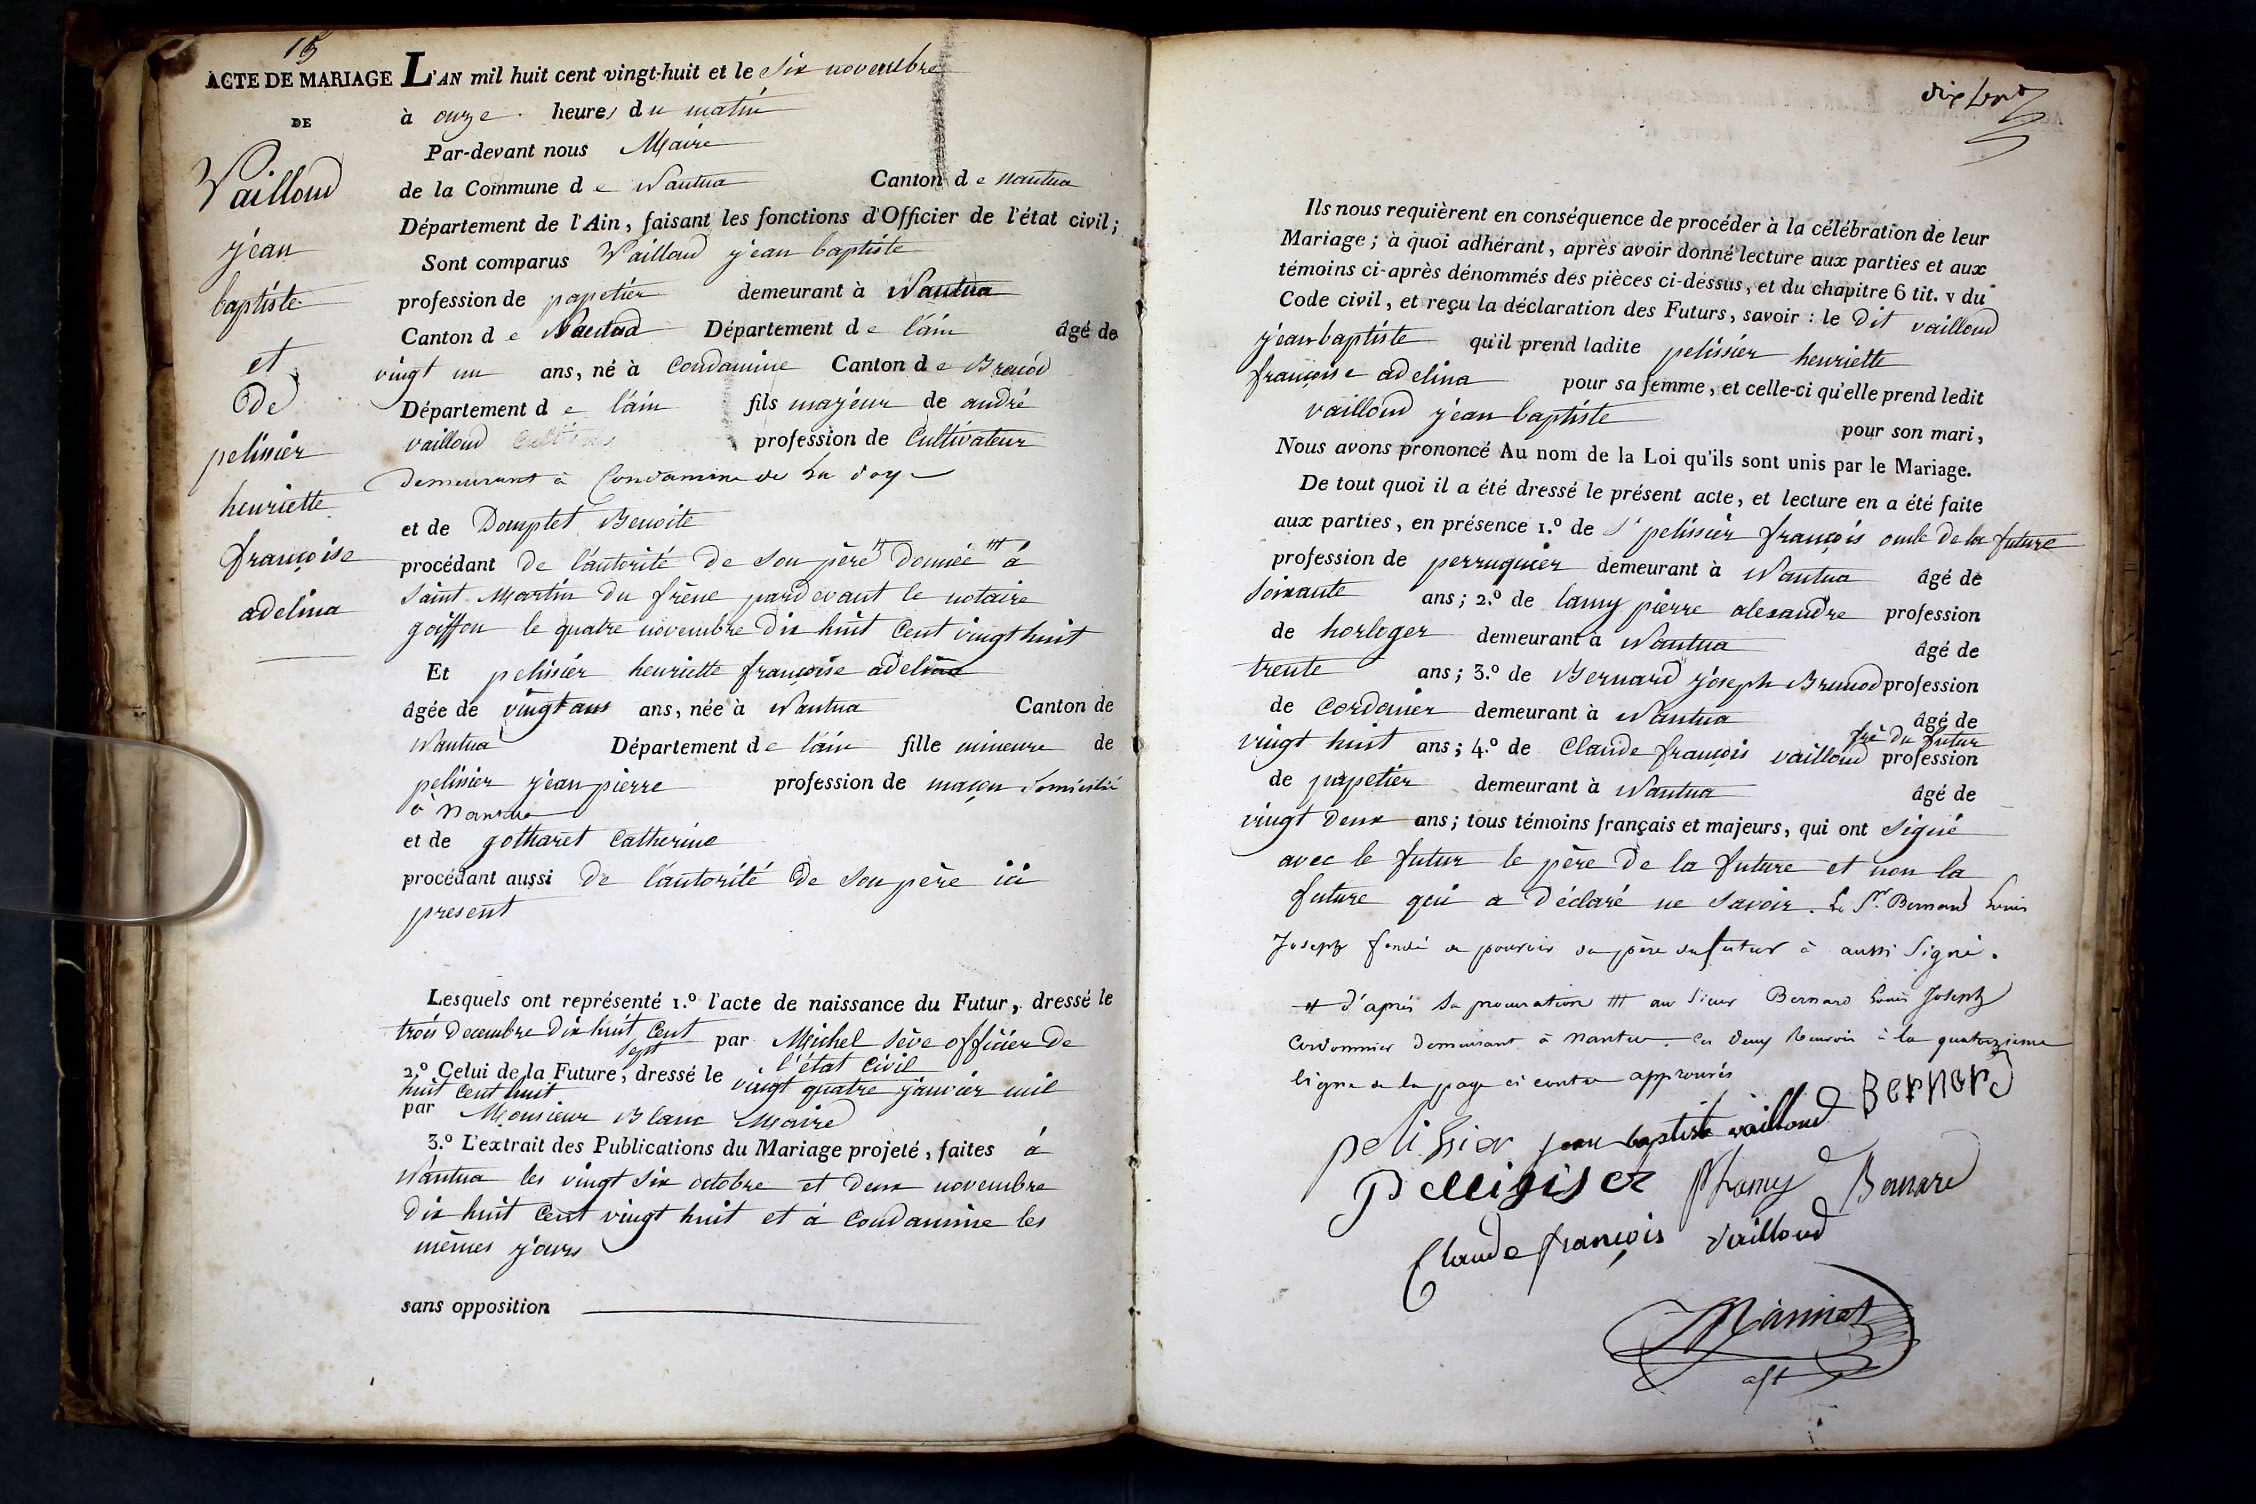 15
ACTE DE MARIAGE
DE
Vailloud
jean
baptiste
et
De
pelissier
henriette
françoise
adelina
L'AN mil huit cent vingt-huit et le six novembre
à onze heures du matin
Par-devant nous Maire
de la Commune de Nantua Canton de nantua
Département de l'Ain, faisant les fonctions d'Officier de l'état civil;
Sont comparus Vailloud jean baptiste
profession de papetier demeurant à Nantua
Canton de Nantua Département de l'ain âgé de
vingt un ans, né à Condamine Canton de Brenod
Département de l'ain fils majeur de andré
vailloud profession de Cultivateur
demeurant à Condamine de la doye
et de Domplet Benoite
procédant de l'autorité de son père donnée à
Saint Martin du frêne pardevant le notaire
goiffon le quatre novembre dix huit cent vingt huit
Et pelissier henriette françoise adelina
âgée de vingt ans ans, née à Nantua Canton de
Nantua Département de l'ain fille mineure de
pelissier jean pierre profession de maçon domicilié
à Nantua
et de gotharet Catherine
procédant aussi de l'autorité de son père ici
present
Lesquels ont représenté 1.º l'acte de naissance du Futur, dressé le
trois decembre dix huit cent sept par Michel Sève officier de
l'état civil
2.º Celui de la Future, dressé le vingt quatre janvier mil
huit cent huit
par Monsieur Blanc Maire
3.º L'extrait des Publications du Mariage projeté, faites à
Nantua les vingt six octobre et deux novembre
dix huit cent vingt huit et à Condamine les
mêmes jours
sans opposition
dix sept
Ils nous requièrent en conséquence de procéder à la célébration de leur
Mariage; à quoi adhérant, après avoir donné lecture aux parties et aux
témoins ci-après dénommés des pièces ci-dessus, et du chapitre 6 tit. v du
Code civil, et reçu la déclaration des Futurs, savoir : le Dit vailloud
jean baptiste qu'il prend ladite pelissier henriette
françoise adelina pour sa femme, et celle-ci qu'elle prend ledit
vailloud jean baptiste pour son mari,
Nous avons prononcé Au nom de la Loi qu'ils sont unis par le Mariage.
De tout quoi il a été dressé le présent acte, et lecture en a été faite
aux parties, en présence 1.º de Sr pelissier françois oncle de la future
profession de perruquier demeurant à Nantua âgé de
soixante ans; 2.º de lamy pierre alexandre profession
de horloger demeurant à Nantua âgé de
trente ans; 3.º de Bernard joseph Brunod profession
de Cordonier demeurant à Nantua âgé de
vingt huit ans; 4.º de Claude françois vailloud frè du futur profession
de papetier demeurant à Nantua âgé de
vingt deux ans; tous témoins français et majeurs, qui ont signé
avec le futur le père de la future et non la
future qui a déclaré ne savoir. Le Sr. Bernard Louis
Joseph fondé de pouvoir du père du futur à aussi Signé.
# d'après sa procuration ### au Sieur Bernard Louis Joseph
Cordonnier demeurant à Nantua. Ces deux Renvois à la quatorzieme
ligne de la page ci contre approuvés
Bernard
pelissier jean baptiste vailloud
Pellissier PLamy Bernard
Claude françois vailloud